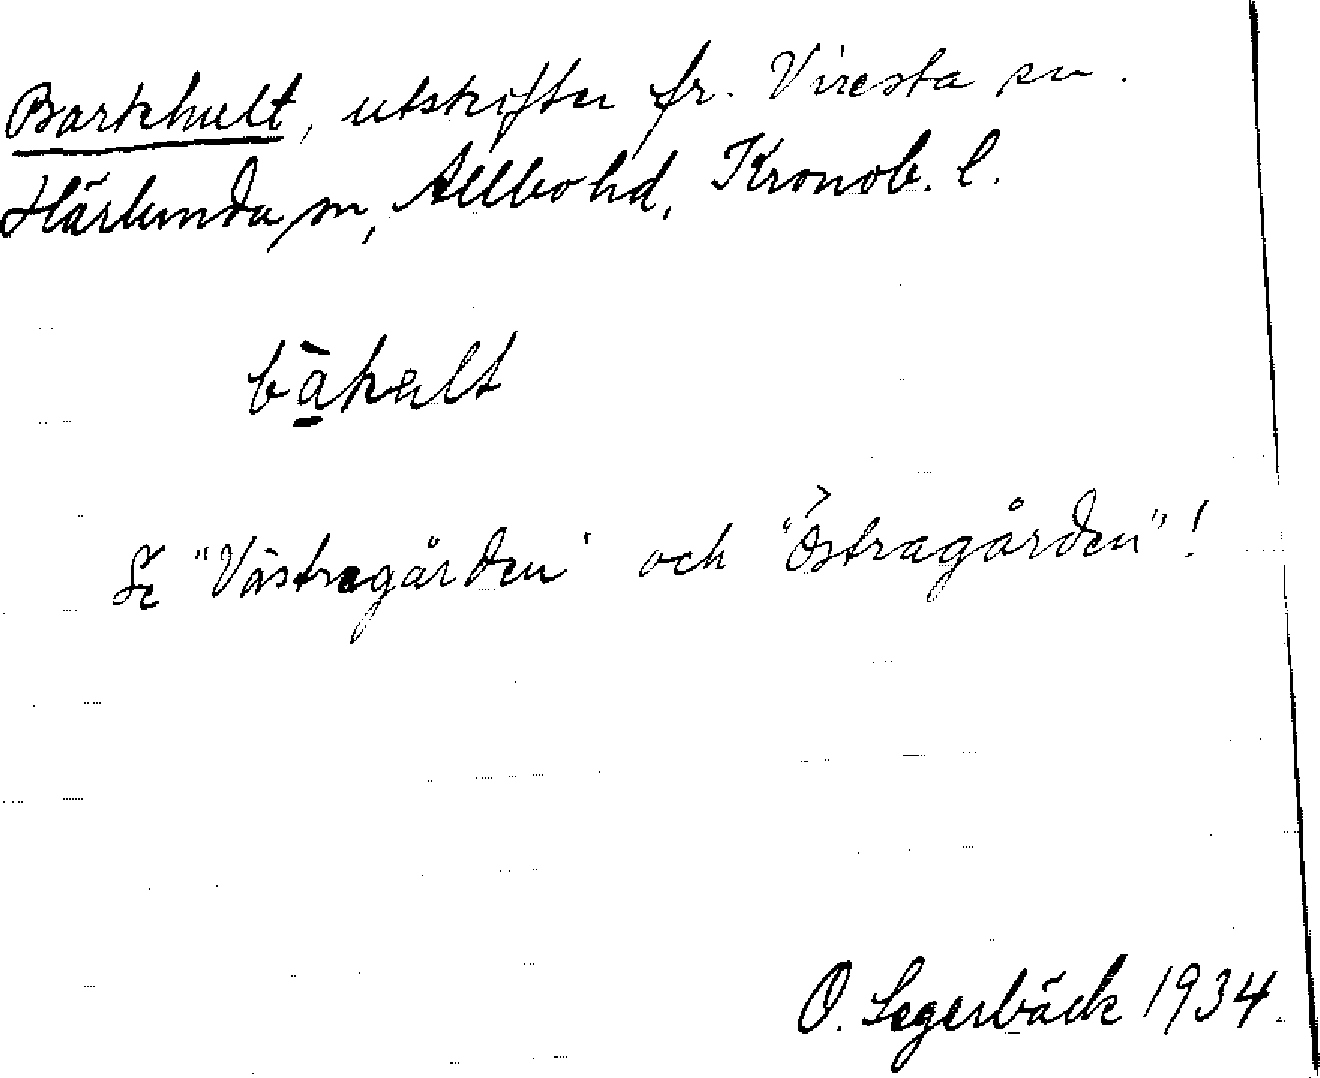 Barkhult, utskiftn fr. Viresta sn.
Härlunda sn, Allbo hd, Kronob. l.
bàkult
Se "Västregården" och "Östragården"!
O. Segerbäck 1934.